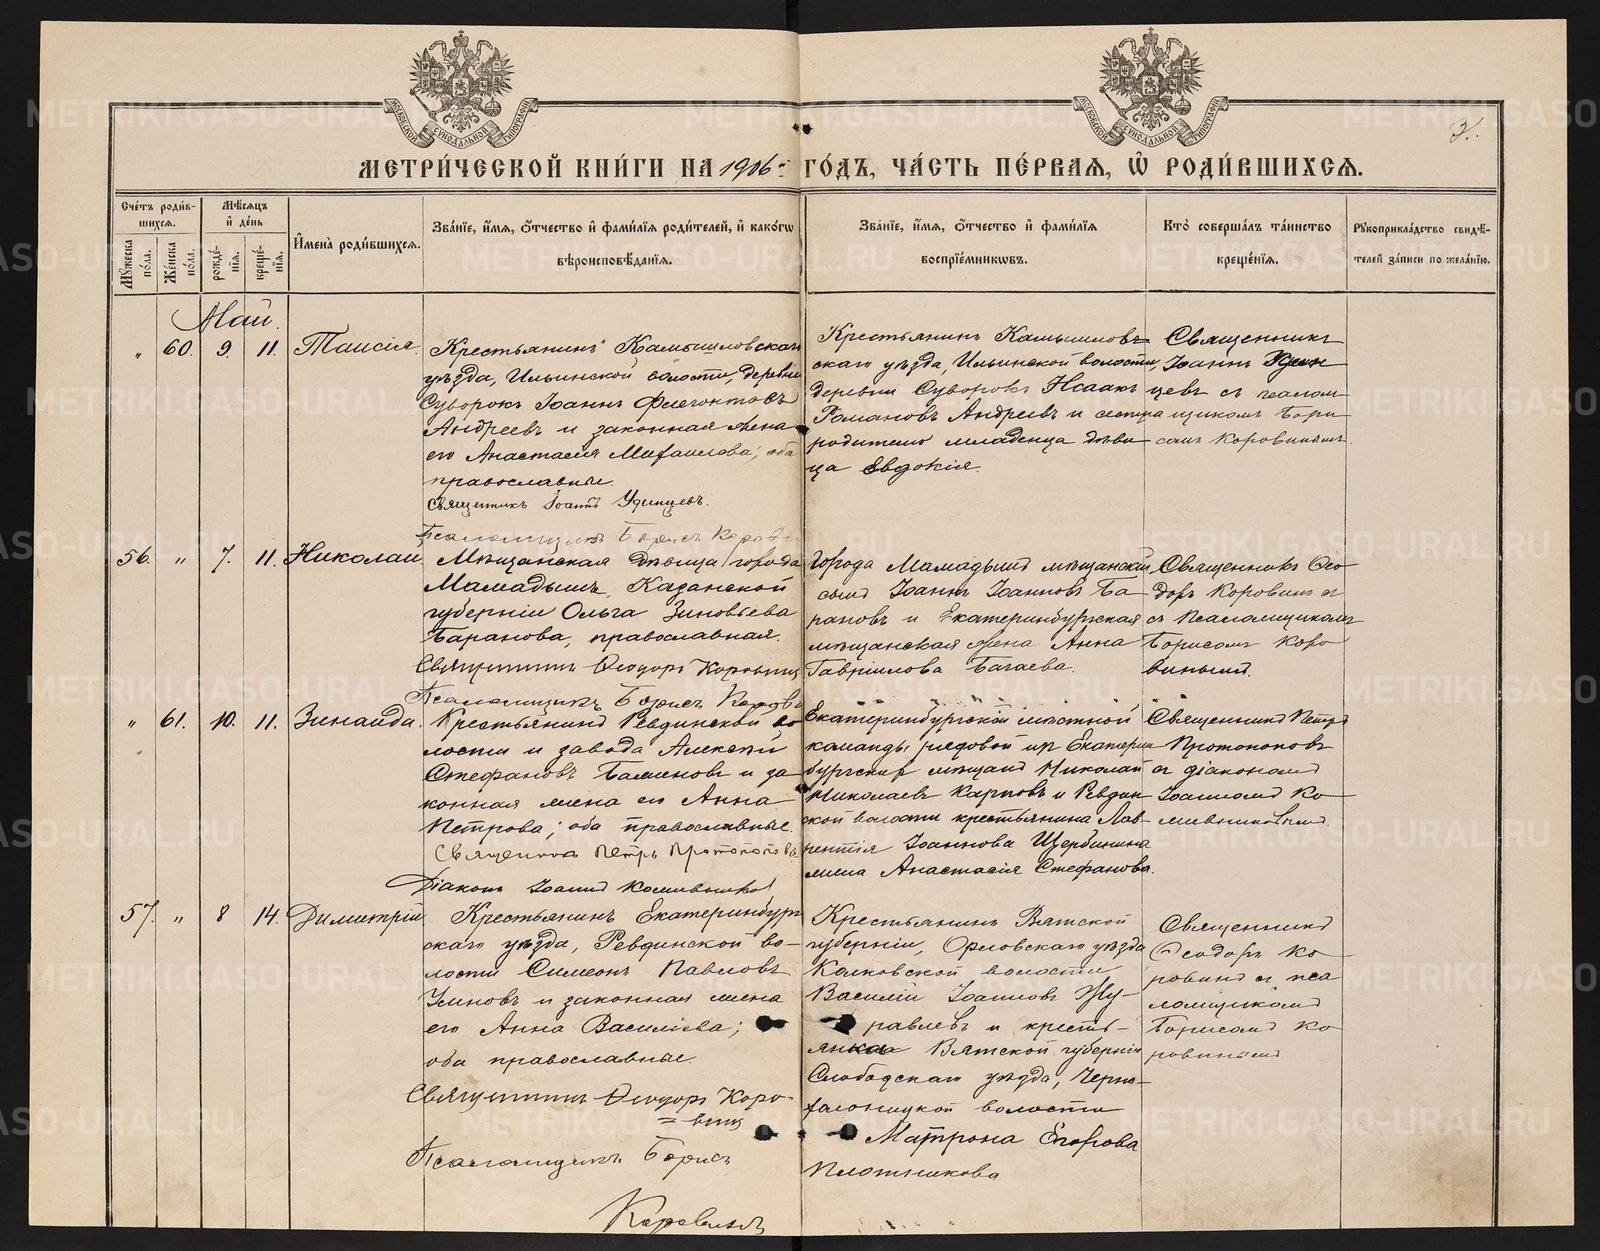 МЕТРИ́ЧЕСКОЙ КНИ́ГИ НА 1906 ГО́ДЪ, ЧА́СТЬ ПЕ́РВАѦ, Ѽ РОДИ́ВШИХСѦ.
Сче́тъ роди́в-
шихсѧ.
Мꙋ́жеска по́ла.
Же́нска по́ла.
Мѣ́сѧцъ
и҆ де́нь
рожде́-
нїѧ.
креще́-
нїѧ.
И҆мена̀ роди́вшихсѧ.
Зва́нїе, и҆́мѧ, ѻ҆́тчество и҆ фами́лїѧ роди́телей, и҆ како́гѡ
вѣроисповѣ́данїѧ.
Зва́нїе, и҆́мѧ, ѻ҆́тчество и҆ фами́лїѧ
воспрїе́мникѡвъ.
Кто̀ соверша́лъ та́инство
креще́нїѧ.
Рꙋкоприкла́дство свидѣ́-
телей за́писи по жела́нїю.
Май.
" 60. 9. 11. Таисія.
Крестьянинъ Камышловскаго
уѣзда, Ильинской волости, деревни
Суворокъ Іоаннъ Флегонтовъ
Андреевъ и законная жена
его Анастасія Михаилова; оба
православные.
Священникъ Іоаннъ Удинцевъ.
Псаломщикъ Борисъ Коровин
Крестьянинъ Камышлов=
скаго уѣзда, Ильинской волости,
деревни Суворокъ Исаакъ
Романовъ Андреевъ и сестра
родителю младенца дѣви-
ца Евдокія.
Священникъ
Іоаннъ Удин
цевъ съ псалом
щикомъ Бори
сомъ Коровинымъ.
56. " 7. 11. Николай
Мѣщанская дѣвица города
Мамадышъ, Казанской
губерніи Ольга Зиновьева
Баранова, православная.
Священникъ Ѳеодоръ Коровинъ
Псаломщикъ Борисъ Корови
Города Мамадышъ мѣщанскій
сынъ Іоаннъ Іоанновъ Ба
рановъ и Екатеринбургская
мѣщанская жена Анна
Гавріилова Багаева.
Священникъ Ѳео
доръ Коровинъ
съ Псаломщикомъ
Борисомъ Коро
винымъ.
" 61. 10. 11. Зинаида.
Крестьянинъ Ревдинской во
лости и завода Алексѣй
Стефановъ и за-
конная жена его Анна
Петрова; оба православные.
Священникъ Петръ Протопоповъ
Діаконъ Іоаннъ
Екатеринбургской мѣстной
команды рядовой изъ Екатерин
бургскихъ мѣщанъ Николай
Николаевъ Карповъ и Ревдин
ской волости крестьянина Лав-
рентія Іоаннова Щербинина
жена Анастасія Стефанова.
Священникъ Петръ
Протопоповъ
съ діакономъ
Іоанномъ Ко
57. " 8 14. Димитрій
Крестьянинъ Екатеринбург
скаго уѣзда, Ревдинской во-
лости Симеонъ Павловъ
Умновъ и законная жена
его Анна Василіева;
оба православные.
Священникъ Ѳеодоръ Коро-
=винъ
Псаломщикъ Борисъ
Коровинъ
Крестьянинъ Вятской
губерніи, Орловскаго уѣзда
волости
Василій Іоанновъ Жу-
равлевъ и кресть-
янка Вятской губерніи
Слободскаго уѣзда,
волости
Матрона Егорова
Плотникова
Священникъ
Ѳеодоръ Ко
ровинъ съ пса
ломщикомъ
Борисомъ Ко
ровинымъ
METRIKI.GASO-URAL.RU